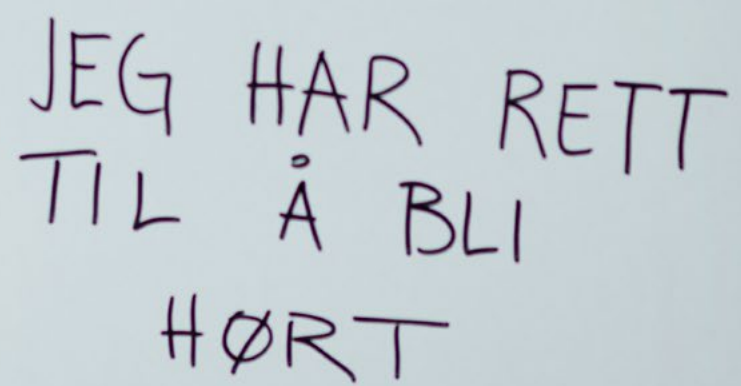 JEG HAR RETT
TIL Å BLI
HØRT